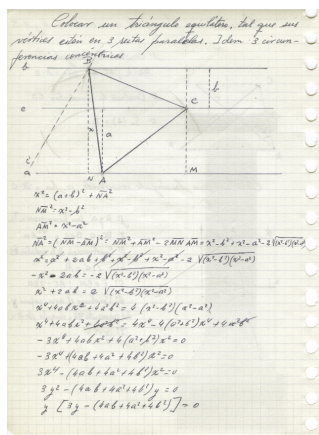 Colocar un triángulo equilátero, tal que sus
vértices estén en 3 rectas paralelas. Idem 3 circun-
ferencias concéntricas
b B
b
c C
x a
a
N A M
x² = (a+b)² + NA²
NM² = x² - b²
AM² = x² - a²
NA² = (NM - AM)² = NM² + AM² - 2 NM AM = x² - b² + x² - a² - 2 √(x²-b²)(x²-a²)
x² = a² + 2ab + b² + x² - b² + x² - a² - 2 √(x²-b²)(x²-a²)
-x² - 2ab = -2 √(x²-b²)(x²-a²)
x² + 2ab = 2 √(x²-b²)(x²-a²)
x⁴ + 4abx² + 4a²b² = 4 (x²-b²)(x²-a²)
x⁴ + 4abx² + 4a²b² = 4x⁴ - 4(a²+b²)x² + 4a²b²
-3x⁴ + 4abx² + 4(a²+b²)x² = 0
-3x⁴ + (4ab + 4a² + 4b²)x² = 0
3x⁴ - (4ab + 4a² + 4b²)x² = 0
3y² - (4ab + 4a² + 4b²)y = 0
y [3y - (4ab + 4a² + 4b²)] = 0